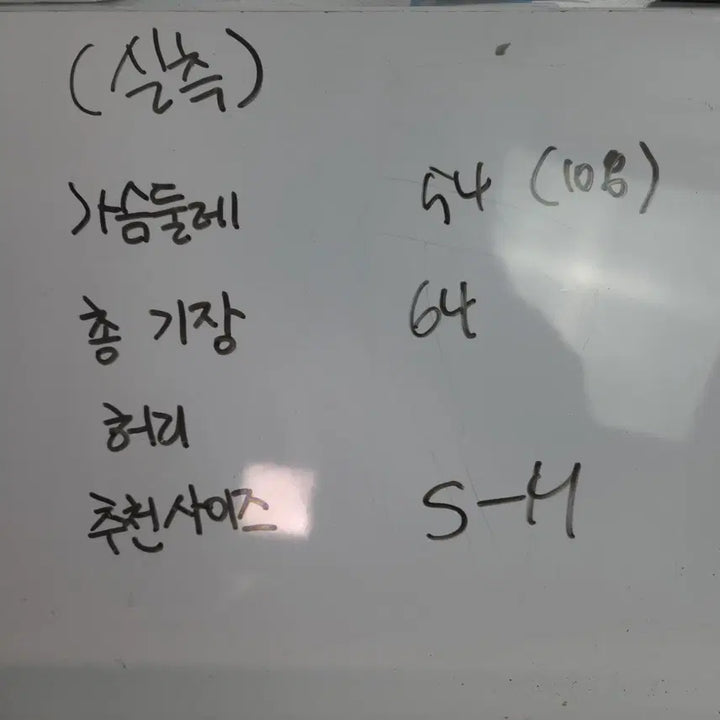 (실측)
가슴둘레 54 (108)
총 기장 64
허리
추천사이즈 S-M